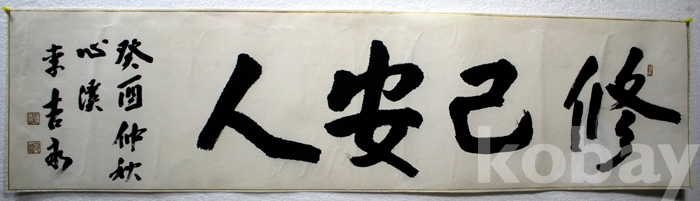 修己安人
癸酉仲秋
心溪
李吉永
kobay